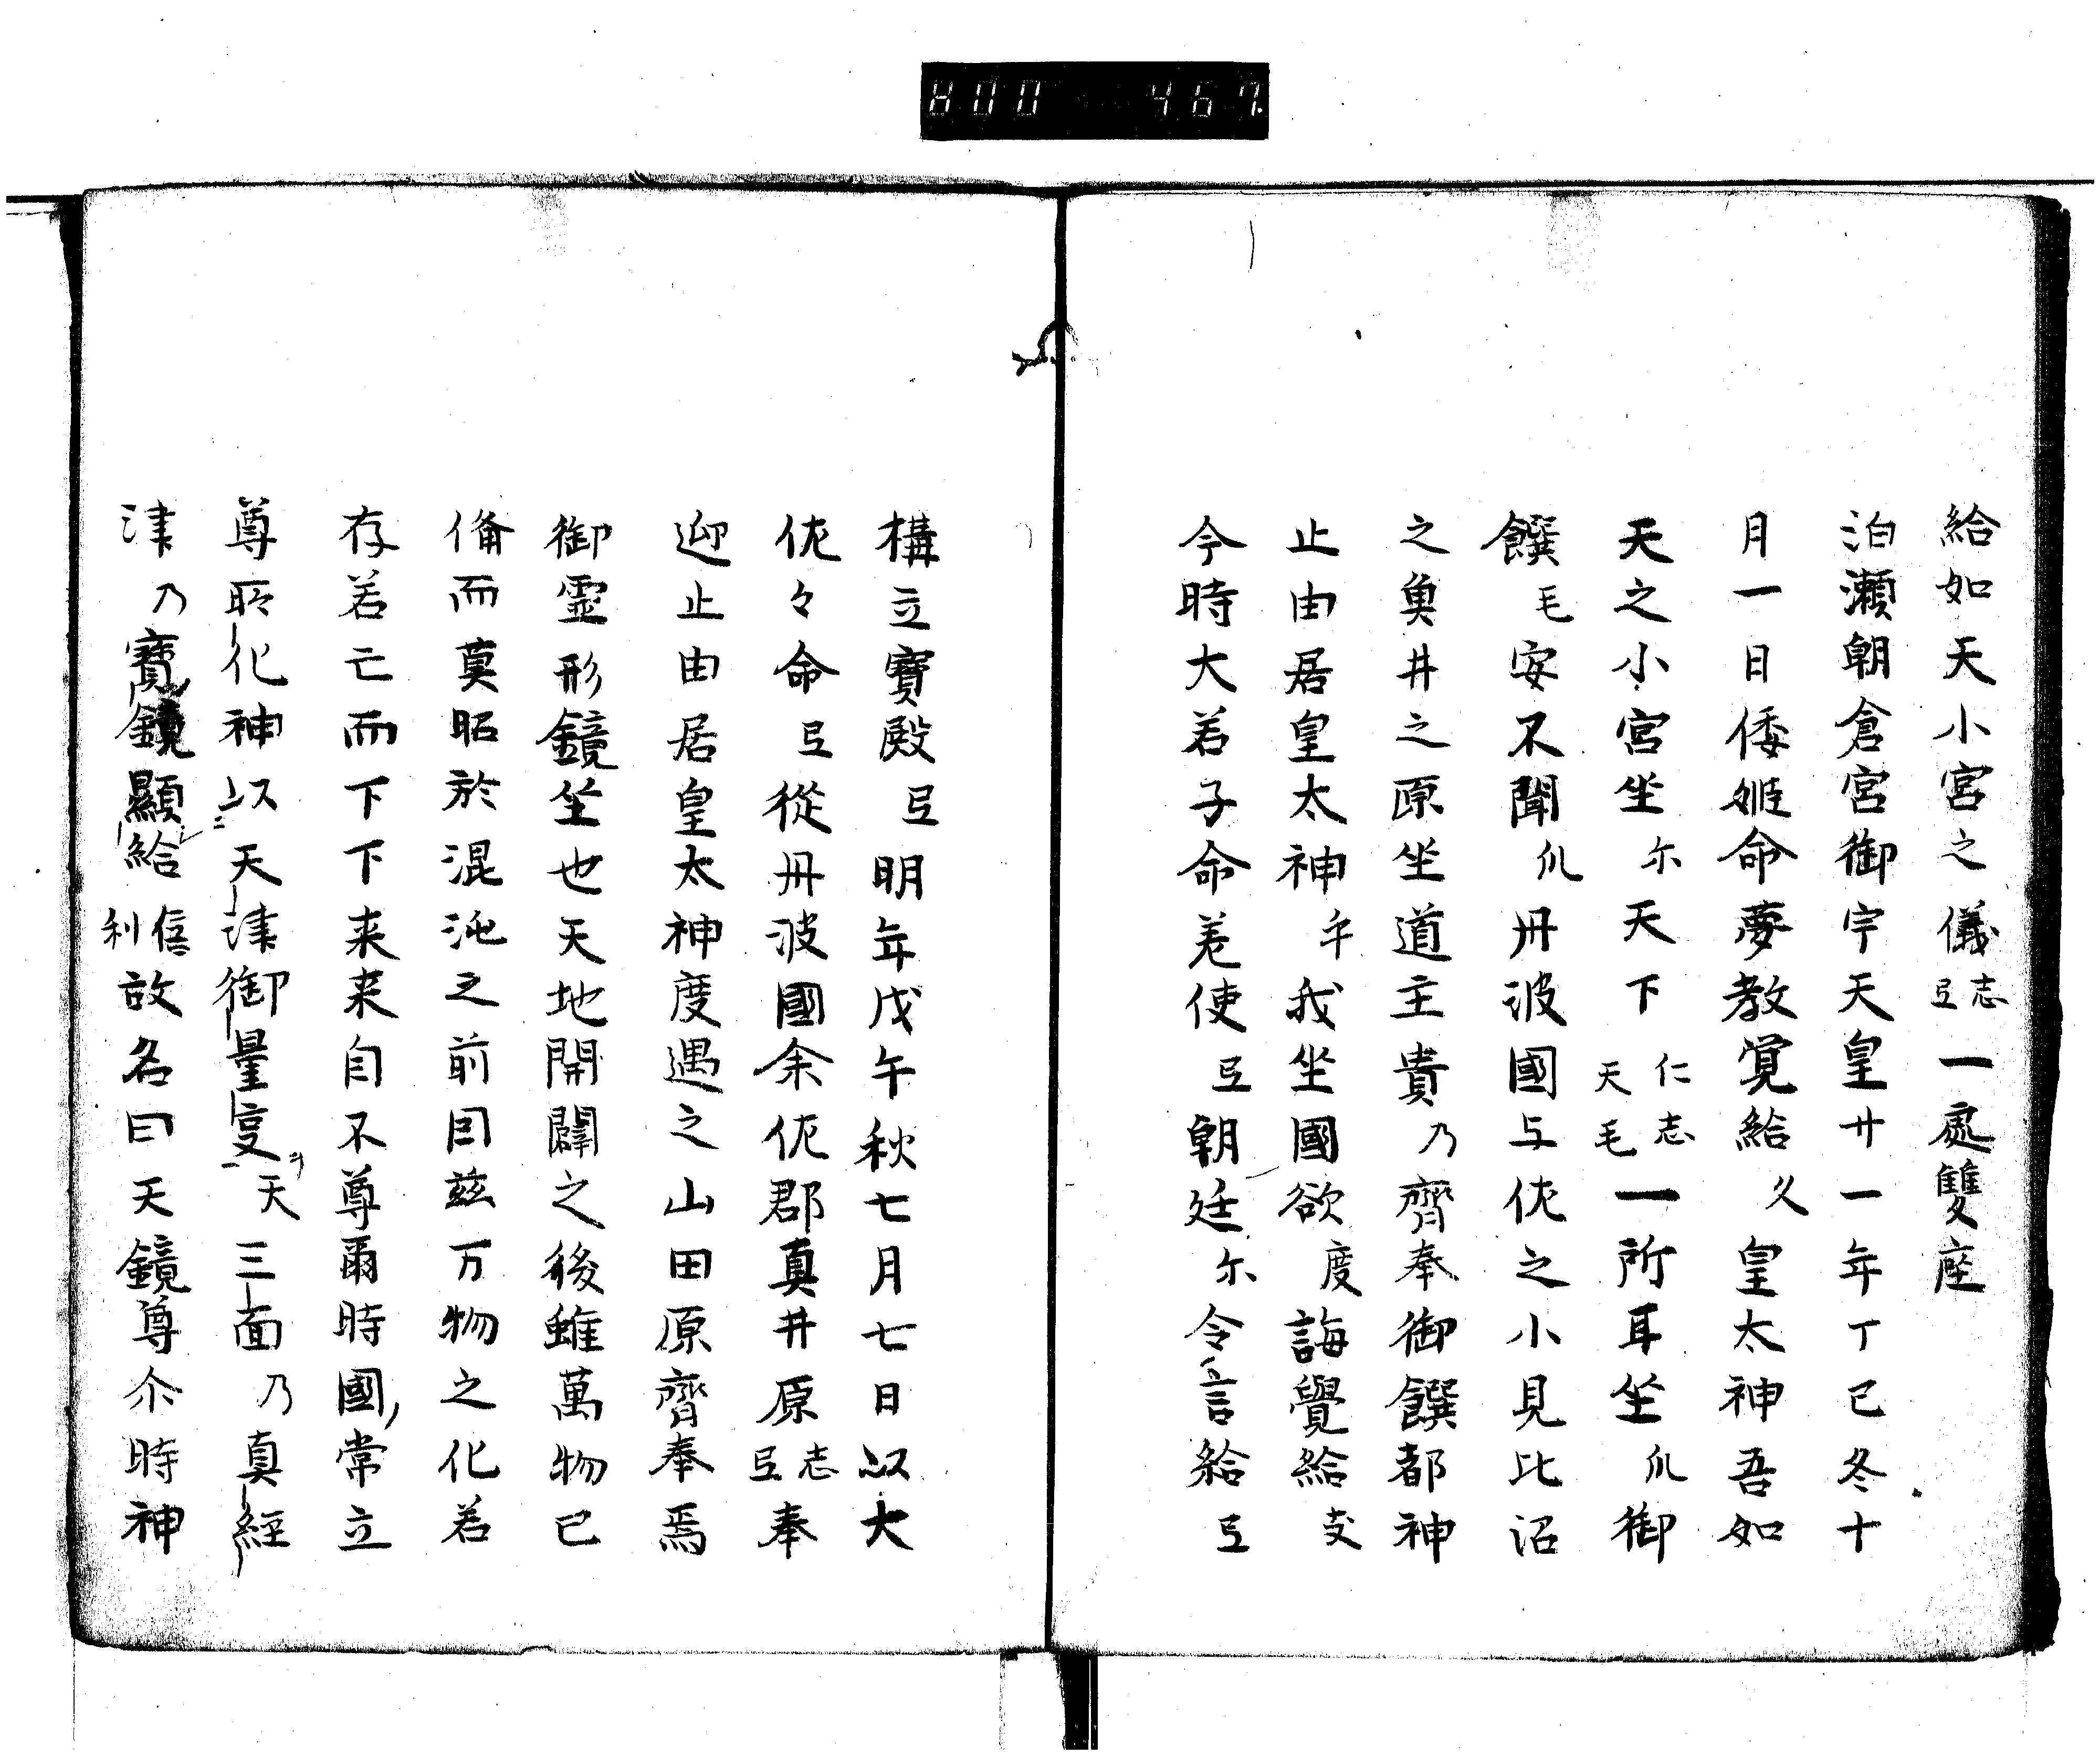 800 467
給如天小宮之儀志弖一處雙座
泊瀬朝倉宮御宇天皇廿一年丁巳冬十
月一日倭姫命夢教覚給久皇太神吾如
天之小宮坐尓天下仁志天毛一所耳坐爪御
饌毛安不聞爪丹波國与佐之小見比沼
之魚井之原坐道主貴乃齊奉御饌都神
止由居皇太神乎我坐國欲度誨覺給支
今時大若子命差使弖朝廷尓令言給弖
構立寶殿弖明年戊午秋七月七日以大
佐々命弖從丹波國余佐郡真井原志弖奉
迎止由居皇太神度遇之山田原齊奉焉
御霊形鏡坐也天地開闢之後雖萬物已
俻而莫昭於混沌之前因兹万物之化若
存若亡而下下来来自不尊爾時國常立
尊所化神以天津御量宣天三面乃真経
津乃寶鏡顯給信利故名曰天鏡尊尒時神